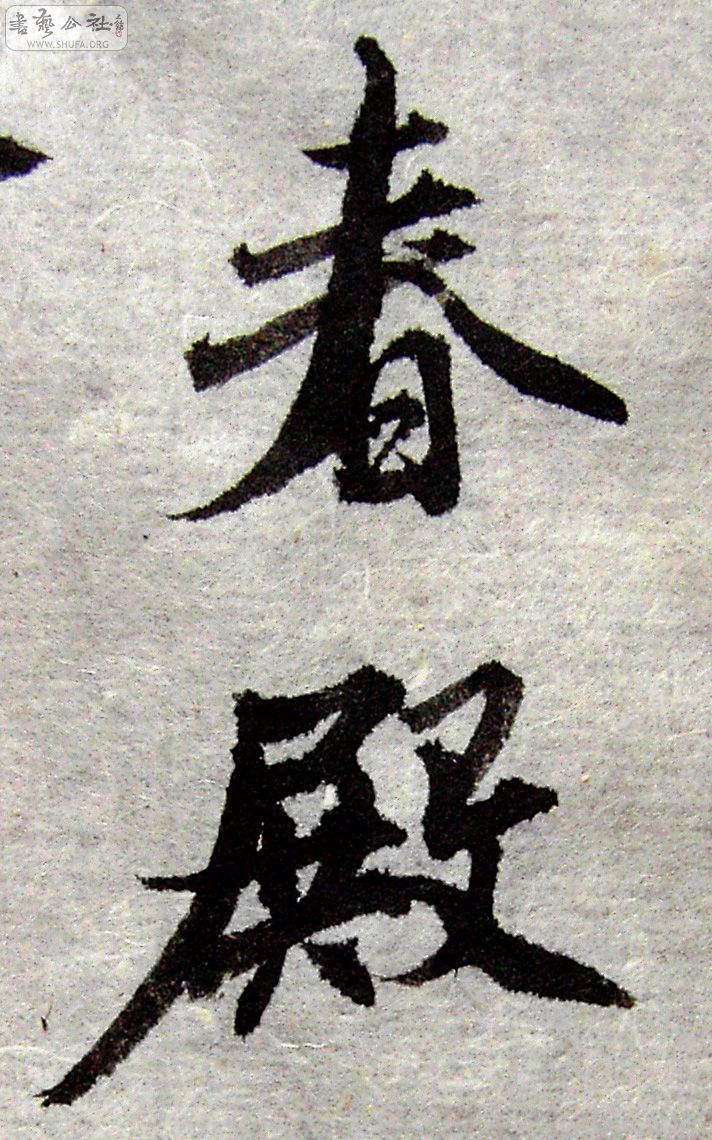 書藝公社
WWW.SHUFA.ORG
春殿